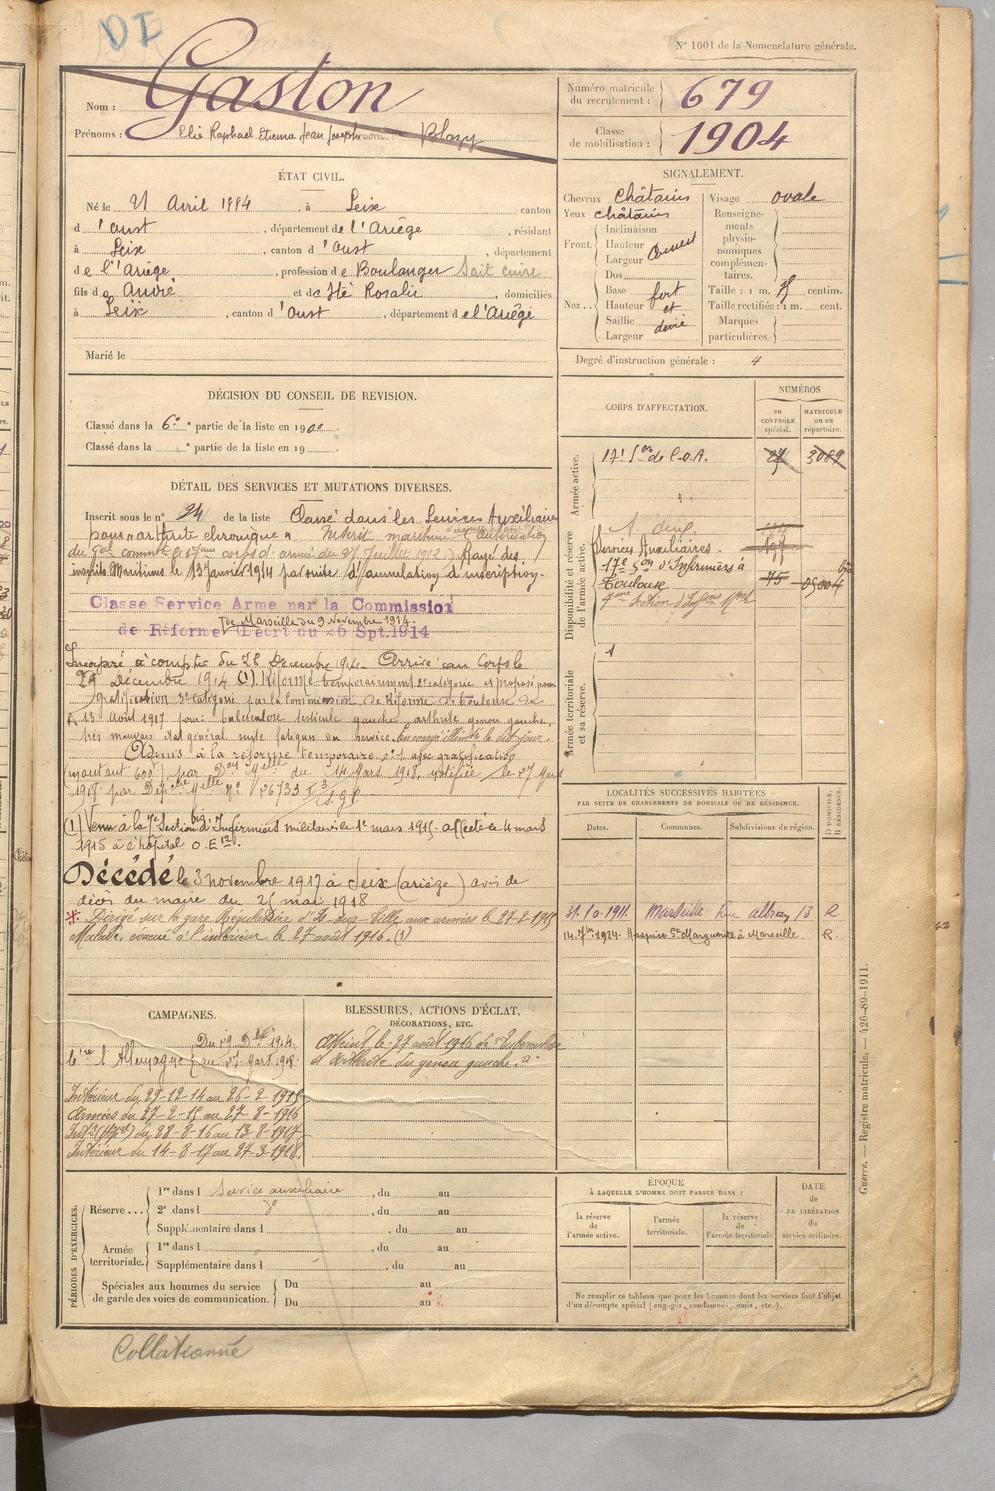 DI
N° 1001 de la Nomenclature générale.
Nom : Gaston
Prénoms : Elie Raphael Etienne Jean Joseph Blazy
Numéro matricule du recrutement : 679
Classe de mobilisation : 1904
ÉTAT CIVIL.
Né le 21 Avril 1884, à Seix, canton
d'Oust, département de l'Ariège, résidant
à Seix, canton d'Oust, département
de l'Ariège, profession de Boulanger Sait cuire
fils de André et de Hté Rosalie, domiciliés
à Seix, canton d'Oust, département de l'Ariège
Marié le
SIGNALEMENT.
Cheveux châtains
Yeux châtains
Front. Inclinaison
Hauteur
Largeur
Couvert
Nez. Dos
Base
Hauteur
Saillie
Largeur
fort et devié
Visage ovale
Renseignements physionomiques complémentaires.
Taille : 1 m. 75 centim.
Taille rectifiée : 1 m. cent.
Marques particulières.
Degré d'instruction générale : 4
DÉCISION DU CONSEIL DE REVISION.
Classé dans la 6e partie de la liste en 190
Classé dans la e partie de la liste en 19
CORPS D'AFFECTATION.
NUMÉROS
au CONTRÔLE spécial.
MATRICULE ou au répertoire.
Armée active.
17e Son de C.O.A.
3089
Disponibilité et réserve de l'armée active.
Services Auxiliaires
17e Son d'Infirmiers à Toulouse
75
Armée territoriale et sa réserve.
DÉTAIL DES SERVICES ET MUTATIONS DIVERSES.
Inscrit sous le n° 24 de la liste Classé dans les Services Auxiliaires
pour "arthrite chronique" Inscrit maritime (autorisation
du Gal commt le 17ème corps d'armée du 27 Juillet 1912) Rayé des
inscrits Maritimes le 13 Janvier 1914 par suite d'annulation d'inscription.
Classe Service Arme par la Commission
de Marseille du 9 Novembre 1914.
de Réforme Décrt du 26 Spt.1914
Incorporé à compter du 28 Decembre 1914. Arrivé au Corps le
29 Decembre 1914 (1) Réformé temporairement 2e catégorie et proposé pour
gratification 3e catégorie par la Commission de Réforme de Toulouse du
13 Août 1917 pour : tuberculose testicule gauche, arthrite genou gauche,
très mauvais état général suite fatigues du service. En congé illimité le dit jour.
Admis à la réforme temporaire avec gratification
(montant 600f) par Don Mlle du 14 Mars 1918, notifiée le 27 Mars
1918 par Dépêche Mlle n° 26733
(1) Venu à la 7e Section d'Infirmiers militaires le 1er mars 1915 affecté le 4 mars
1915 à l'hôpital O.E 12.
Décédé le 3 novembre 1917 à Seix (ariège) avis de
décès du maire du 25 mai 1918
* Dirigé sur la gare Régulatrice d'Is sur Tille aux armées le 27-2-1915
Malade, évacué à l'intérieur le 27 août 1916. (1)
LOCALITÉS SUCCESSIVES HABITÉES
PAR SUITE DE CHANGEMENTS DE DOMICILE OU DE RÉSIDENCE.
Dates. Communes. Subdivisions de région.
D DOMICILE, R RÉSIDENCE.
31.10.1911. Marseille 13 R
14.7bre 1914. Hospice Ste Marguerite à Marseille R.
CAMPAGNES.
Du 29 Dbre 1914
Contre l'Allemagne au 27 Mars 1918.
Intérieur du 29-12-14 au 26-2-1915
Armées du 27-2-15 au 27-8-1916
du 28-8-16 au 13-8-1917
Intérieur du 14-8-17 au 27-3-1918.
BLESSURES, ACTIONS D'ÉCLAT,
DÉCORATIONS, ETC.
Atteint le 27 août 1916 de "Tuberculose
et d'arthrite du genou gauche."
PÉRIODES D'EXERCICES.
Réserve... 1re dans l Service auxiliaire, du au
2e dans l d°, du au
Supplémentaire dans l, du au
Armée territoriale. 1re dans l, du au
Supplémentaire dans l, du au
Spéciales aux hommes du service de garde des voies de communication. Du au
Du au
ÉPOQUE
À LAQUELLE L'HOMME DOIT PASSER DANS :
la réserve de l'armée active.
l'armée territoriale.
la réserve de l'armée territoriale
DATE de LA LIBÉRATION du service militaire.
Ne remplir ce tableau que pour les hommes dont les services font l'objet
d'un décompte spécial (engagés, condamnés, omis, etc.).
Guerre. — Registre matricule. — 426-89-1911.
Collationné